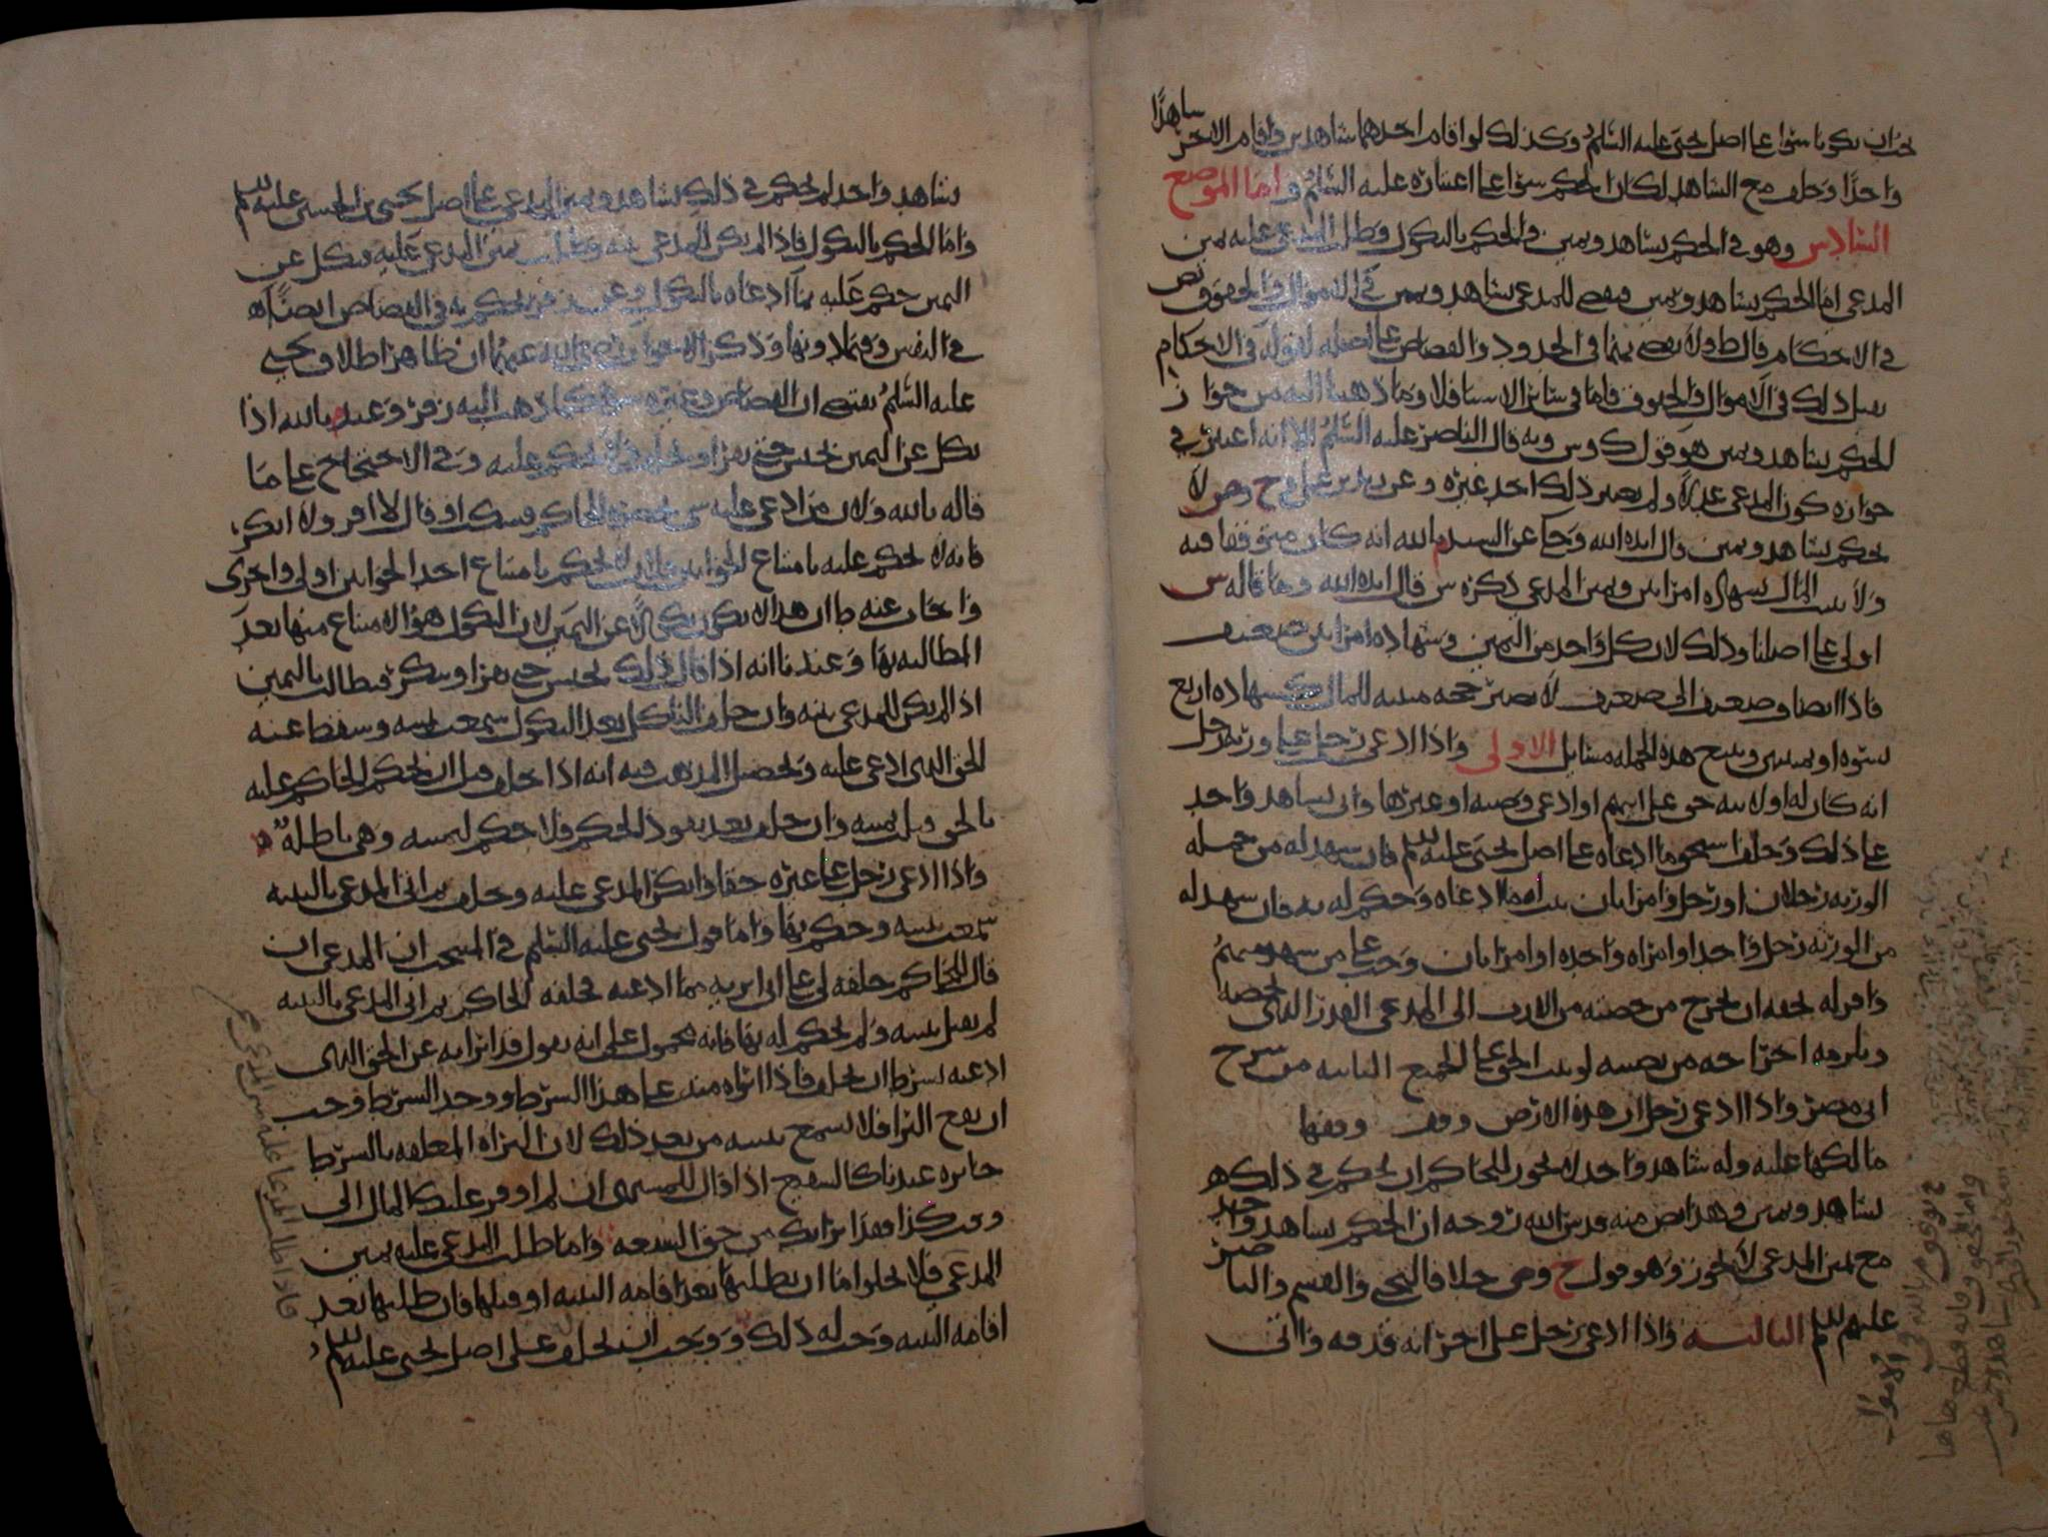 يجب ان يكونا سواء على اصل يحيى عليه السلام وكذلك لو اقام احدهما شاهدين واقام الاخر شاهدًا
واحدًا وحلف مع الشاهد لكان الحكم سواء على اعتباره عليه السلام واما الموضع
السادس وهو في الحكم بشاهد ويمين والحكم بالنكول وطلب المدعى عليه يمين
المدعي اما الحكم بشاهد ويمين فيقضى للمدعي بشاهد ويمين في الاموال والحقوق نص
في الاحكام قال ط ولا يقضى بهما في الحدود والقصاص على لقوله في الاحكام
يقبل ذلك في الاموال والحقوق فاما في سائر الاشيا فلا وما ذهبنا اليه من جواز
الحكم بشاهد ويمين هو قول ك وس وبه قال الناصر عليه السلام الا انه اعتبر في
جوازه كون المدعي عدلا ولم يعتبر ذلك احد غيره وعن زيد بن علي وح وص لا
يحكم بشاهد ويمين قال ايده الله وحكى عن السيد م بالله انه كان متوقفا فيه
ولا يثبت المال بشهادة امراتين ويمين المدعي ذكره س قال ايده الله وما قاله س
اولى على اصلنا وذلك لان كل واحد من اليمين وشهادة امراتين ضعيف
فاذا انضاف ضعيف الى ضعيف لا يصير حجة مثبتة للمال كشهادة اربع
نسوة او يمينين ويتبع هذه الجملة مسائل الاولى واذا ادعى رجل على ورثة رجل
انه كان له او لابنه حق على ابيهم او ادعى وصية او غيرها واتى بشاهد واحد
على ذلك وحلف استحق ما ادعاه على اصل يحيى عليه السلام فان شهد له من جملة
الورثة رجلان او رجل وامراتان ثبت له ما ادعاه وحكم له به فان شهد له
من الورثة رجل واحد او امراة واحدة او امراتان وجب على من شهد منهم
واقر له بحقه ان يخرج من حصته من الارث الى المدعي القدر الذي يخصه
ويلزمه اخراجه من نصيبه لو ثبت الحق على الجميع الثانية من شرح
ابي مضر واذا ادعى رجل ان هذه الارض وقف وقفها
مالكها عليه وله شاهد واحد لا يجوز للحاكم ان يحكم في ذلك
بشاهد ويمين وهذا نص منه قدس الله روحه ان الحكم بشاهد واحد
مع يمين المدعي لا يجوز وهو قول ح وص خلاف يحيى والقسم والناصر
عليهم السلام الثالثة واذا ادعى رجل على اخر انه قذفه واتى
بشاهد واحد لم يحكم في ذلك بشاهد ويمين المدعي على اصل يحيى بن الحسين عليه السلام
واما الحكم بالنكول فاذا لم يكن للمدعي بينة وطلب يمين المدعى عليه فنكل عن
اليمين حكم عليه بما ادعاه بالنكول وعن زفر يحكم به في القصاص ايضًا
في النفس وفيما دونها وذكر الاخوان رضي الله عنهما ان ظاهر اطلاق يحيى
عليه السلام يقتضي ان القصاص وغيره سواء كما ذهب اليه زفر وعند م بالله اذا
نكل عن اليمين يحبس حتى يقر او يحلف ولا يحكم عليه وفي الاحتجاج على ما
قاله م بالله ولان من ادعى عليه شي بحضرة الحاكم فسكت او قال لا اقر ولا انكر
فانه لا يحكم عليه بامتناع الجوابين فلان لا يحكم بامتناع احد الجوابين اولى واحرى
واجاب عنه ط ان هذا لا يكون نكولا عن اليمين لان النكول هو الامتناع منها بعد
المطالبة بها وعندنا انه اذا قال ذلك يحبس حتى يقر او ينكر فيطالب باليمين
اذا لم يكن للمدعي بينة وان حلف الناكل بعد النكول سمعت يمينه وسقط عنه
الحق الذي ادعي عليه وتحصيل المذهب فيه انه اذا حلف قبل ان يحكم الحاكم عليه
بالحق قبلت يمينه وان حلف بعد نفوذ الحكم فلا حكم ليمينه وهي باطلة
واذا ادعى رجل على غيره حقا فانكر المدعى عليه وحلف ثم اتى المدعي بالبينة
سمعت بينته وحكم بها واما قول يحيى عليه السلام في المنتخب ان المدعي ان
قال للحاكم حلفه لي على اني ابريه مما ادعيه فحلفه الحاكم ثم اتى المدعي بالبينة
لم تقبل بينته ولم يحكم له بها فانه محمول على انه يقول قد ابراته عن الحق الذي
ادعيه بشرط ان يحلف فاذا ابراه منه على هذا الشرط ووجد الشرط وجب
ان يقع البرا فلا تسمع بينته من بعد ذلك لان البراة المعلقة بالشرط
جائزة عندنا كالشفيع اذا قال للمشتري ان لم اوفر عليك المال الى
وقت كذا فقد ابراتك من حق الشفعة واما طلب المدعى عليه يمين
المدعي فلا يخلو اما ان يطلبها بعد اقامة البينة او قبلها فان طلبها بعد
اقامة البينة وجب له ذلك ووجب ان يحلف على اصل يحيى عليه السلام